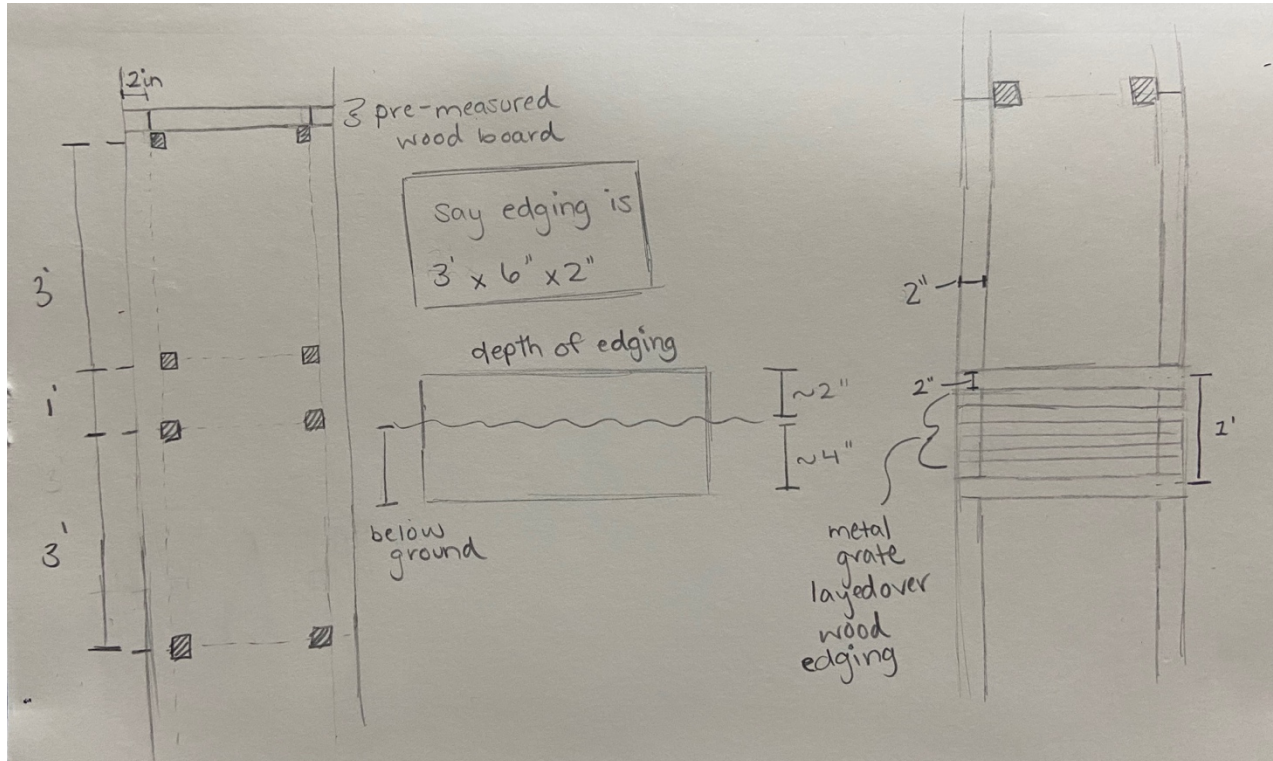 2in
3 pre-measured
wood board
say edging is
3' x 6" x 2"
3'
1'
3'
depth of edging
~2"
~4"
below
ground
2"
2"
1'
metal
grate
layedover
wood
edging